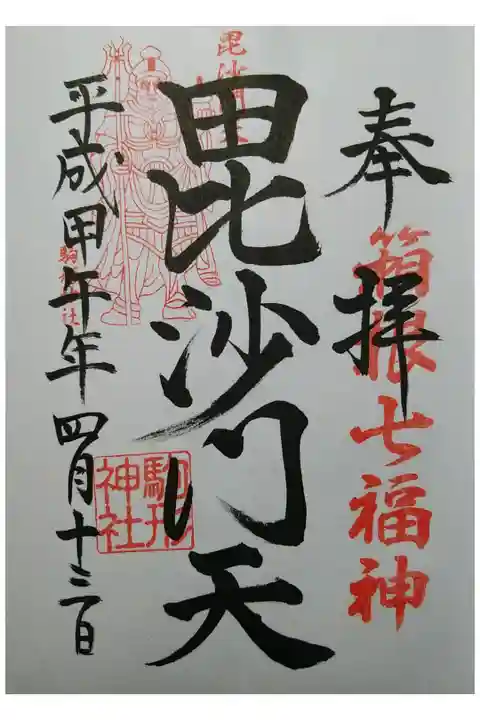 奉拝
箱根七福神
毘沙門天
毘沙門天
駒形神社
駒形神社
平成甲午年四月十三日